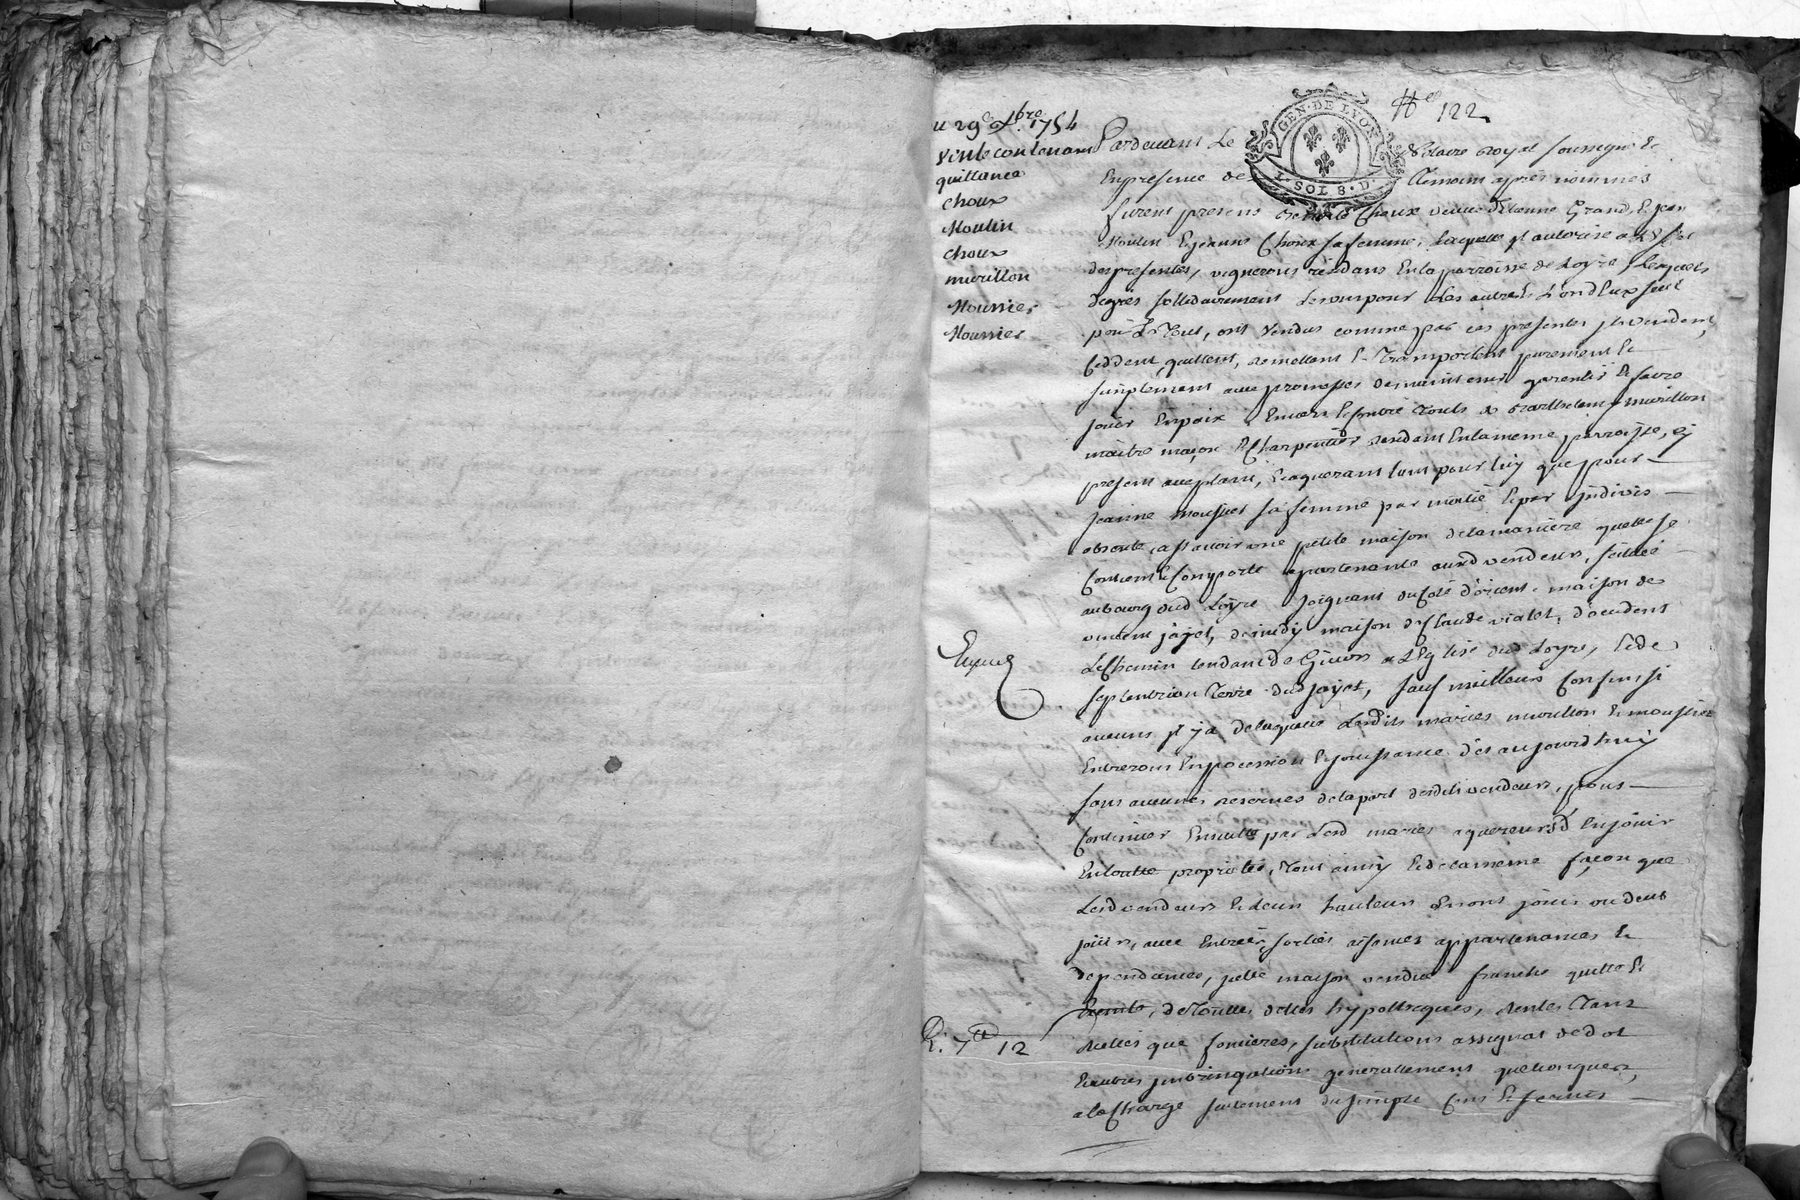 № 122
GEN. DE LYON
1. SOL 8. D.
29e Xbre 1754
Vente contenant
quittance
choux
Moulin
choux
murillon
Mounier
Mounier
Expediée
R. 7tt 12
Pardevant Le Notaire royal soussigné Et
En presence des Temoins apres nommes
furent presens Choux veuve d'Etienne Grand, Et jean
Moulin Et jeanne Choux sa femme, laquelle il autorise
des presentes, vignerons residans En la parroisse de Loyre, Lesquels
de gres sollidairement Les uns pour Les autres L'un d'Eux seul
pour Le Tout, ont vendus comme par ces presentes ils vendent,
Ceddent, quittent, remettent Et Transportent purement Et
simplement avec promesses de maintenir garentir Et faire
jouir En paix Envers Et contre Touts a Barthelemy murillon
maitre maçon Et Charpentier residant En la meme parroisse, ici
present acceptant, Et aquerant tant pour luy que pour
jeanne mousnier sa femme par moitié Et par jndivis
absente, a sçavoir une petite maison de la maniere quelle se
Contient Et Comporte apartenante auxd vendeurs, scituée
au bourg dud Loyre joignant du Coté d'orient, maison de
vincent jayet, de midy maison de Claude vialet, d'occident
Le Chemin tendant de Givors a L'Eglise dud Loyre, Et de
septentrion Terre dud jayet, sauf meilleurs Confins si
aucuns il y a de laquelle Lesdits maries murillon Et mousnier
Entreront En pocession Et jouissance des aujourd'huy
sans aucunes reserves de la part desdits vendeurs, pour
Continuer Ensuitte par Lesd maries aquereurs d'En jouir
En toutte proprieté, Tout ainsy Et de la meme façon que
Lesd vendeurs Et Leurs hauteurs En ont jouis ou deub
joüir, avec Entrées, sorties aisances appartenances Et
dependances, jcelle maison vendue franche quitte Et
Exempte, de Touttes dettes hypotheques, rentes Tant
reelles que foncieres, substitutions assignat de dot
Et autres jmbringations generallement quelconques,
a la Charge seulement du simple Cens Et servis